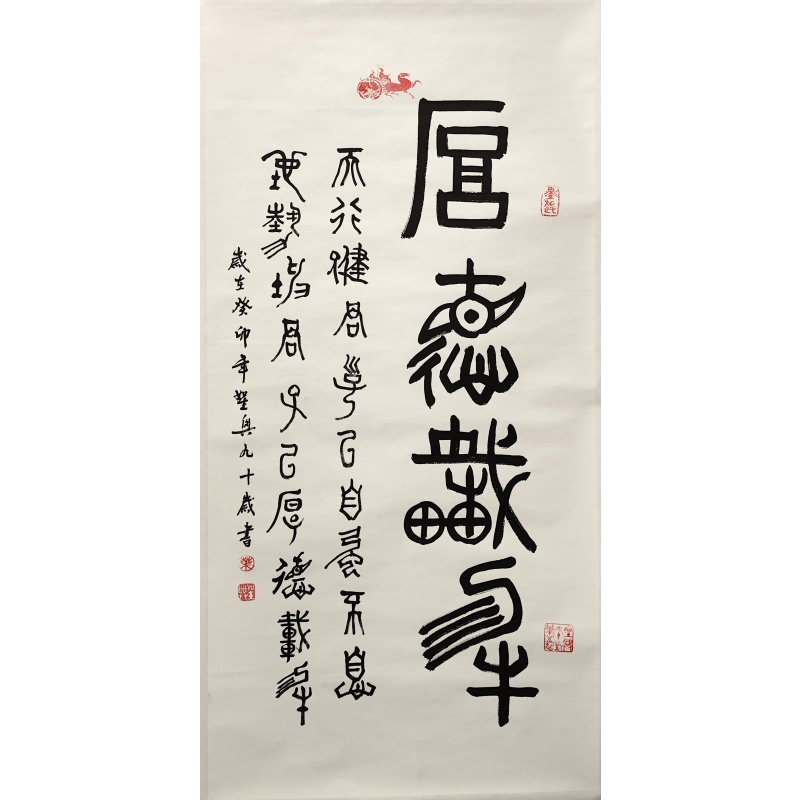 厚德載物
天行健君子以自強不息
地勢坤君子以厚德載物
歲在癸卯年堃興九十歲書